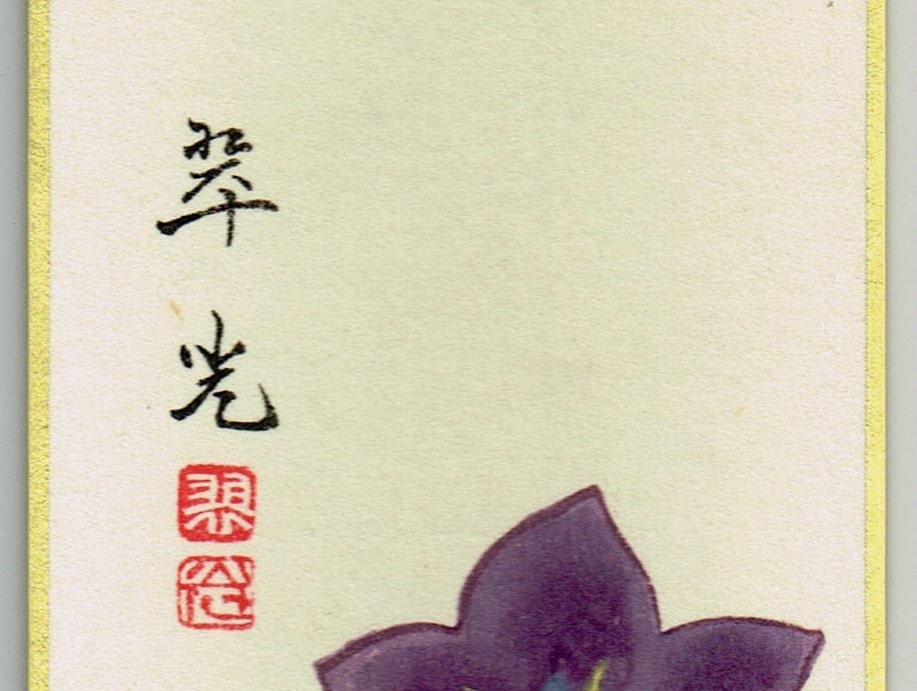 翠光
翠
光